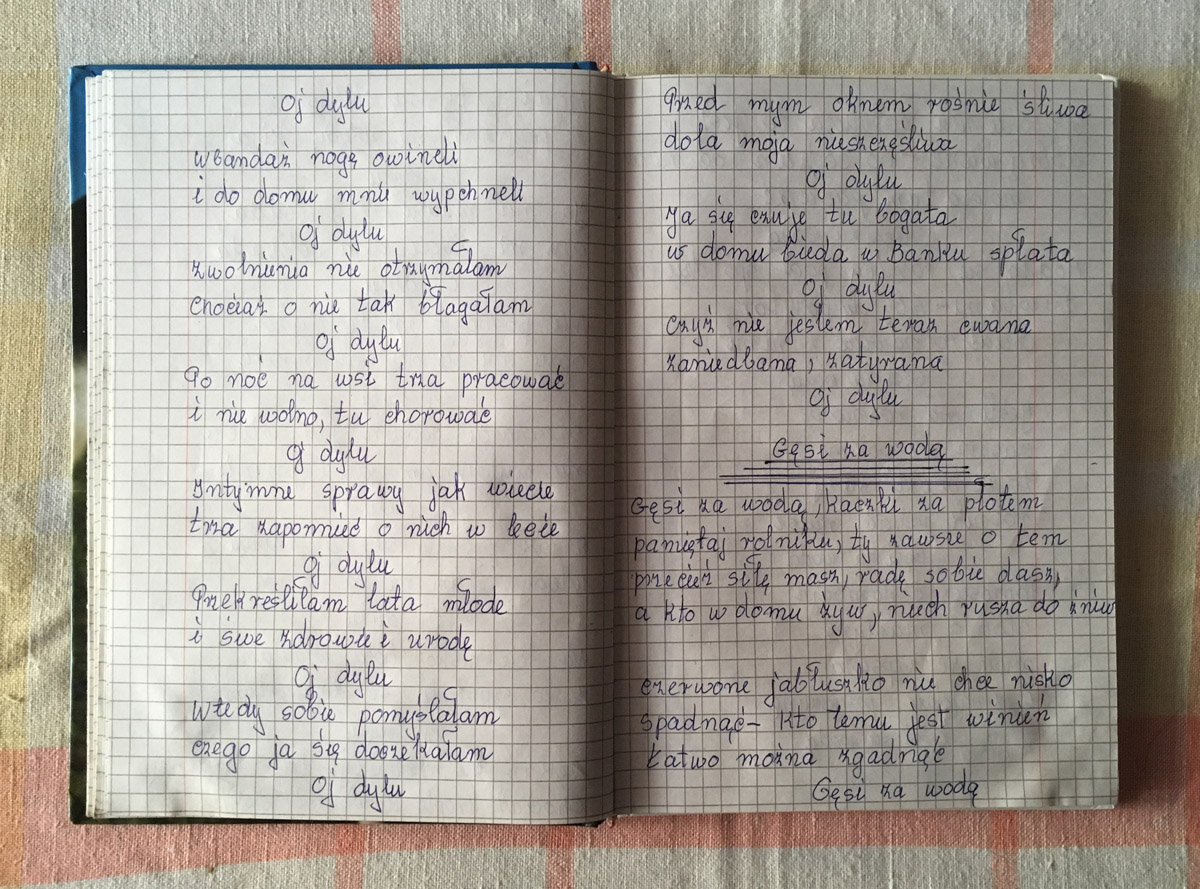 Oj dylu
w bandaż nogę owineli
i do domu mnie wypchneli
Oj dylu
zwolnienia nie otrzymałam
chociaż o nie tak błagałam
Oj dylu
Po noć na wsi trza pracować
i nie wolno, tu chorować
Oj dylu
Intymne sprawy jak wiecie
trza zapomieć o nich w lecie
Oj dylu
Przekreśliłam lata młode
i śwe zdrowie i urodę
Oj dylu
Wtedy sobie pomyślałam
czego ja się doczekałam
Oj dylu
Przed mym oknem rośnie śliwa
dola moja nieszczęśliwa
Oj dylu
Ja się czuje tu bogata
w domu bieda w Banku spłata
Oj dylu
Czyż nie jestem teraz cwana
zaniedbana, zatyrana
Oj dylu
Gęsi za wodą
Gęsi za wodą, kaczki za płotem
pamiętaj rolniku, ty zawsze o tem
przecież siłę masz, radę sobie dasz,
a kto w domu żyw, niech rusza do żniw
czerwone jabłuszko nie chce nisko
spadnąć - kto temu jest winień
Łatwo można zgadnąć
Gęsi za wodą